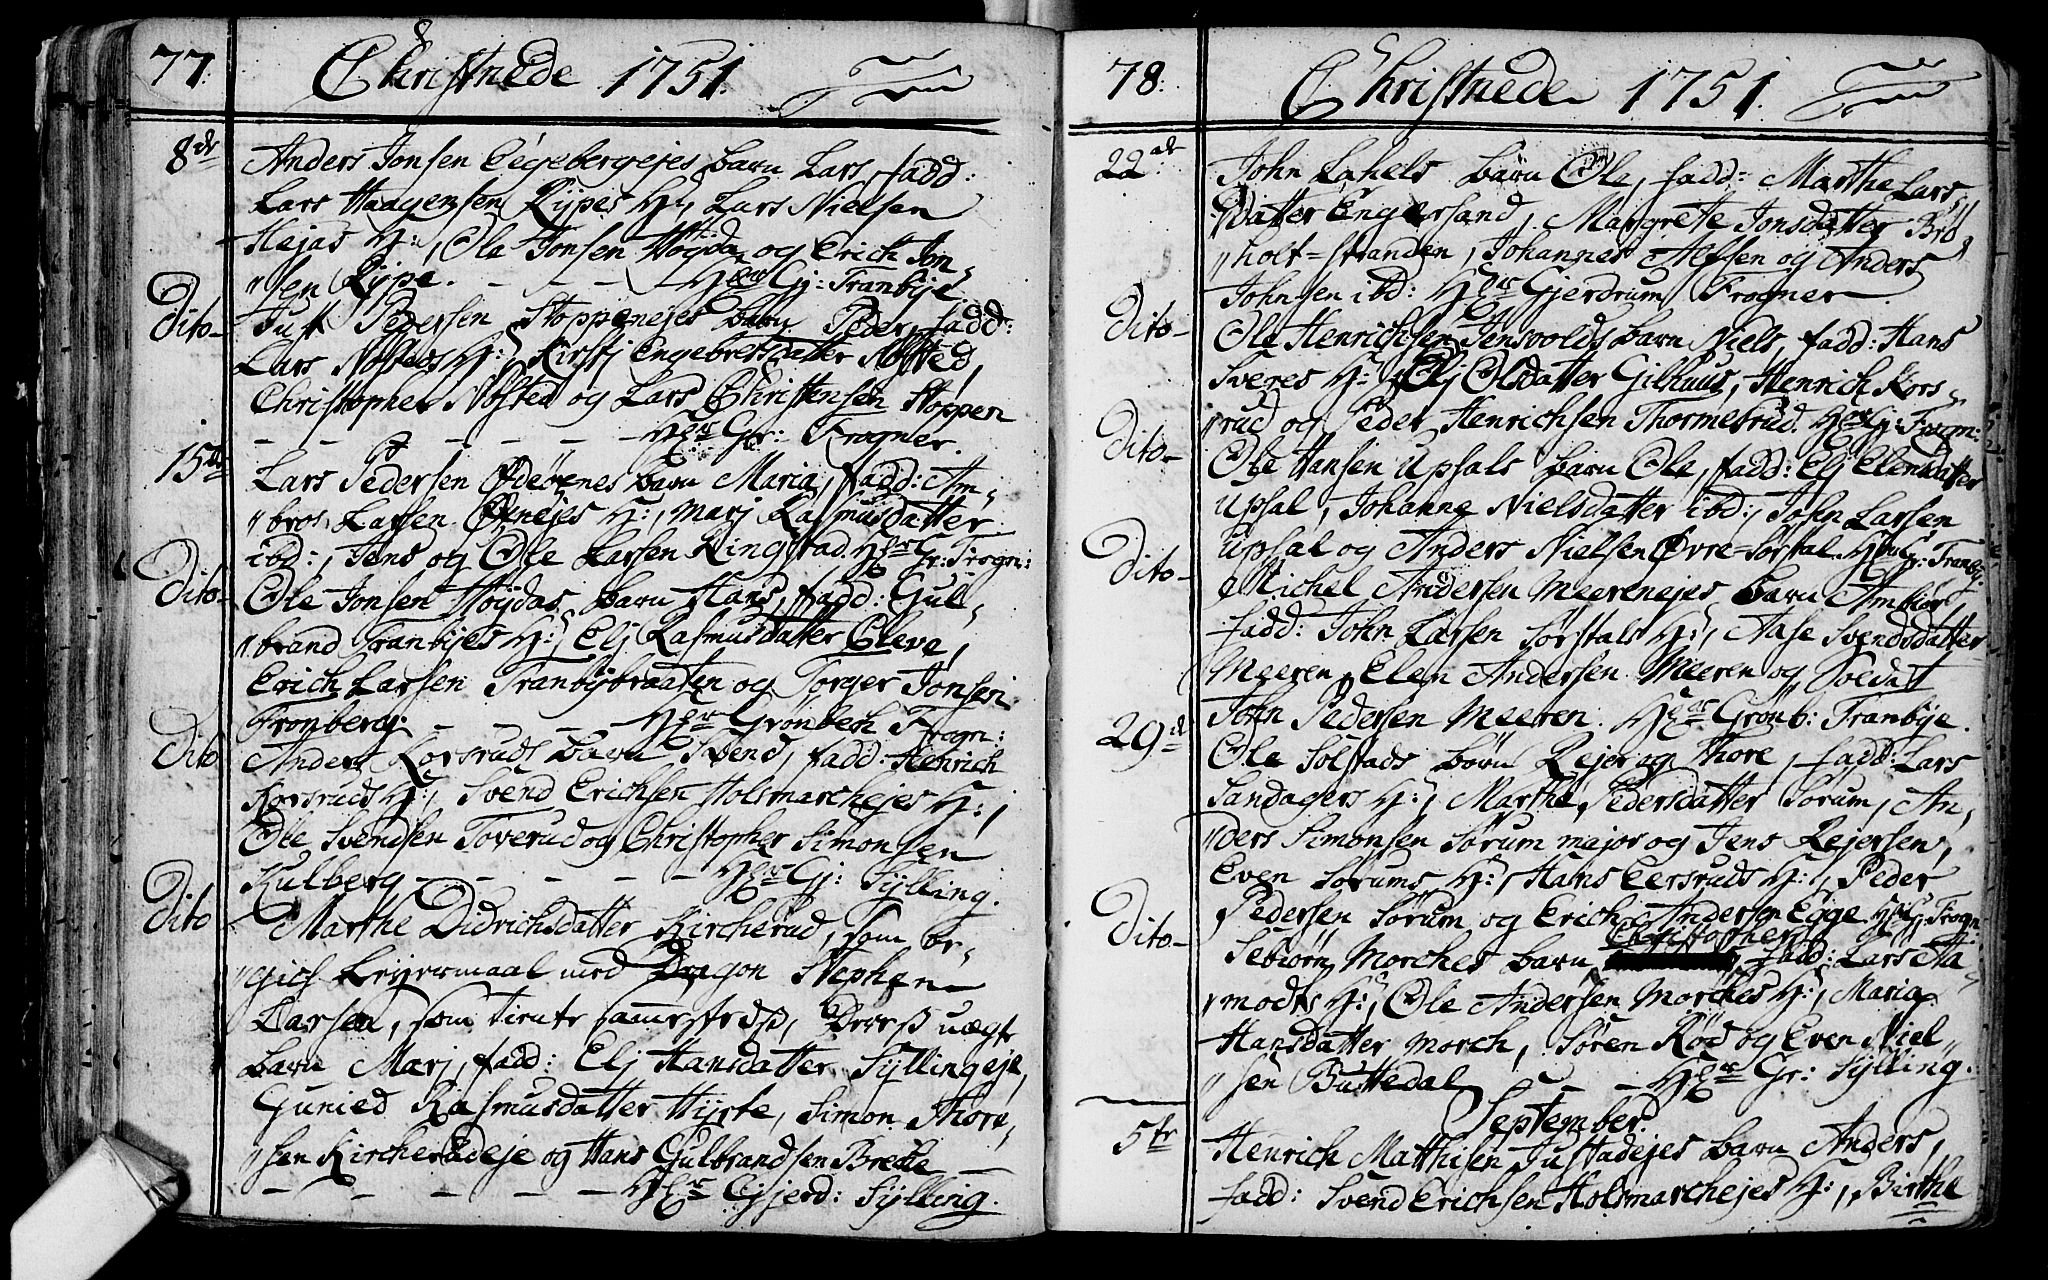 77. Christnede 1751.
8de Anders Jonsen Eigebergejes barn Lars, fadd:
Lars Haagensen Rypes H:, Lars Nielsen
Hejas H:, Ole Jonsen Høyda og Erich Jon-
"sen Rype. - - - Hr Gj: Tranbye.
Dito- Just Pedersen Stoppenejes barn Peder, fadd:
Lars Nøsteds H:, Kirstj Engebretsdatter Nøsted,
Christopher Nøsted og Lars Christensen Stoppen
- - - - - - Hr Gr: Frogner.
15de Lars Pedersen Ødeøvnes barn Maria, fadd: Am-
"bros Larsen Øvnejes H:, Marj Rasmusdatter
ibd:, Jens og Ole Larsen Ringstad. Hr Gr: Frogn:
Dito- Ole Jonsen Høydas barn Hans, fadd: Gul-
"brand Tranbyes H:, Elj Rasmusdatter Cleve,
Erich Larsen Tranbybraaten og Torger Jonsen
Tronberg. - - - Hr Grønbech Frogn:
Dito Anders Korsruds barn Svend, fadd: Henrich
Korsruds H:, Svend Erichsen Holsmarchejes H:,
Ole Svendsen Toverud og Christopher Simonsen
Kulberg - - - - - Hr Gj: Sylling.
Dito Marthe Didrichsdatter Kircherud, som be-
"gich Leyermaal med Dragon Stephen
Larsen, som tiente sammestedss, Deress uægte
barn Marj, fadd: Elj Hansdatter Syllingeje,
Gunied Rasmusdatter Hyrte, Simon Thore-
"sen Kircherudeje og Hans Gulbrandsen Breche
- - - - - - Hr Gjerd: Sylling.
78. Christnede 1751.
22de John Lahels barn Ole, fadd: Marthe Lars-
"datter Engersand, Margrete Jonsdatter Brø-
"holt=stranden, Johannes Alfsen og Anders
Johnsen ibd: Hr Gjerdrum Frogner.
Dito- Ole Henrichsen Jensvolds barn Niels, fadd: Hans
Sveres H:, Elj Olsdatter Gilhuus, Henrich Kors-
"rud og Peder Henrichsen Thormesrud. Hr Gj: Frogn:
Dito- Ole Hansen Upsals barn Ole, fadd: Elj Elensdatter
Upsal, Johanne Nielsdatter ibd:, John Larsen
Upsal og Anders Nielsen Øvre=Sørsdal. Hr Gj: Tranby.
Dito- Michel Andersen Meerenejes barn Ambiør,
fadd: John Larsen Sørstals H:, Aase Svendsdatter
Meeren, Elen Andersen Meeren og Soldat
John Pedersen Meeren. Hr Grønb: Tranbye.
29de Ole Solstads børn Rejer og Thore, fadd: Lars
Sandagers H:, Marthe Pedersdatter Sørum, An-
"ders Simonsen Sørum major og Jens Rejersen,
Even Sørums H:, Hans Eersruds H:, Peder
Pedersen Sørum og Erich Andersen Egge Hr Gj: Frogn:
Dito- Sebiørn Morches barn Christopher, fadd: Lars Aa-
"modts H:, Ole Andersen Morches H:, Maria
Hansdatter Morch, Søren Rød og Even Niel-
"sen Buttedal - - - Hr Gr: Sylling.
September.
5te Henrich Matthisen Justadejes barn Anders,
fadd: Svend Erichsen Holsmarchejes H:, Birthe